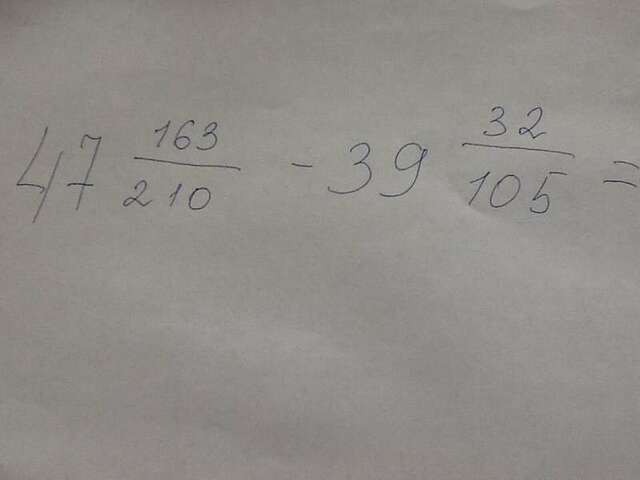 47 163/210 - 39 32/105 =